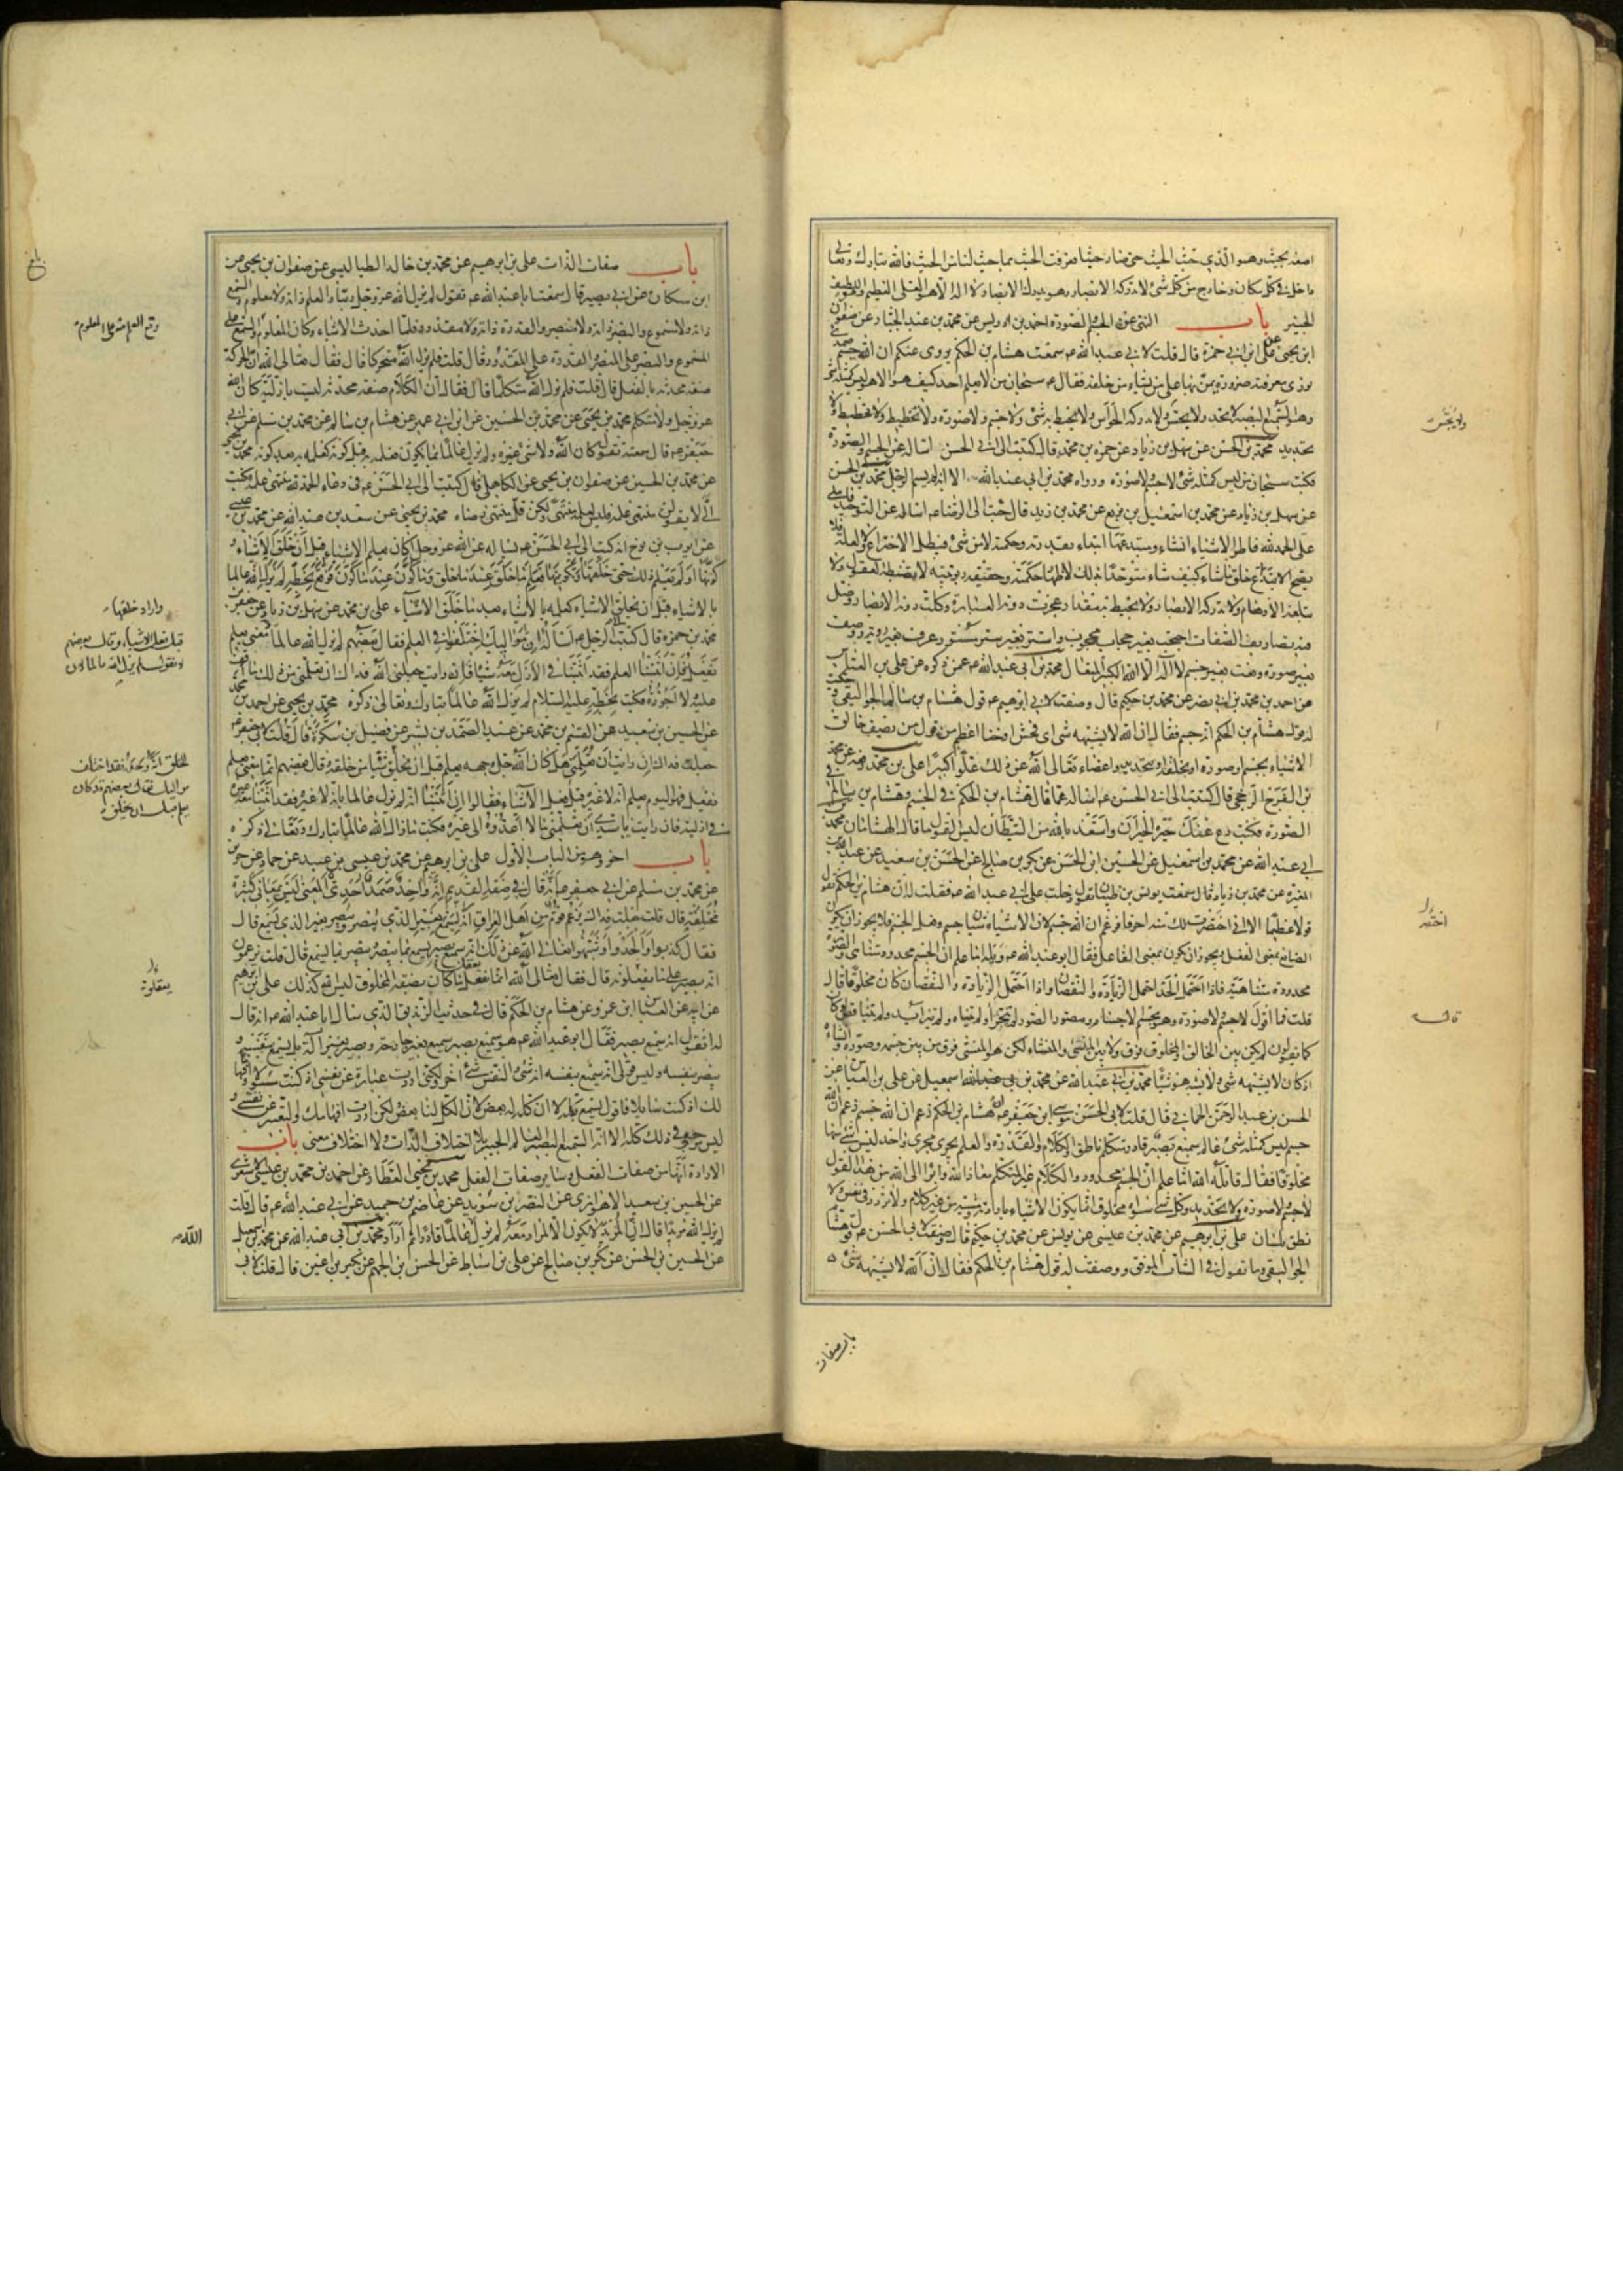 اصفه بحيث وهو الذي حيث الحيث حتى صار حيثا فعرفت الحيث بما حيث لنا من الحيث فالله تبارك وتعالى
داخل في كل مكان وخارج من كل شئ لا تدركه الابصار وهو يدرك الابصار لا اله الا هو العلي العظيم وهو اللطيف
الخبير باب النهي عن الجسم والصورة احمد بن ادريس عن محمد بن عبد الجبار عن صفوان
ابن يحيى عن علي ابن ابي حمزة قال قلت لابي عبد الله ع سمعت هشام بن الحكم يروي عنكم ان الله جسم صمدي
نوري معرفته ضرورة يمن بها على من يشاء من خلقه فقال ع سبحان من لا يعلم احد كيف هو الا هو ليس كمثله شئ
وهو السميع البصير لا يحد ولا يحس ولا تدركه الحواس ولا يحيط به شئ ولا جسم ولا صورة ولا تخطيط ولا
تحديد محمد بن الحسن عن سهل بن زياد عن حمزة بن محمد قال كتبت الى ابي الحسن اساله عن الجسم والصورة
فكتب سبحان من ليس كمثله شئ لا جسم ولا صورة ورواه محمد بن ابي عبد الله الا انه لم يسم الرجل محمد بن الحسن
عن سهل بن زياد عن محمد بن اسمعيل بن بزيع عن محمد بن زيد قال جئت الى الرضا ع اساله عن التوحيد فاملى
على الحمد لله فاطر الاشياء انشاء ومبتدعها ابتداء بقدرته وحكمته لا من شئ فيبطل الاختراع ولا لعلة فلا
يصح الابتداع خلق ما شاء كيف شاء متوحدا بذلك لاظهار حكمته وحقيقة ربوبيته لا تضبطه العقول ولا
تبلغه الاوهام ولا تدركه الابصار ولا يحيط به مقدار عجزت دونه العبارة وكلت دونه الابصار وضل
فيه تصاريف الصفات احتجب بغير حجاب محجوب واستتر بغير ستر مستور عرف بغير رؤية ووصف
بغير صورة ونعت بغير جسم لا اله الا الله الكبير المتعال محمد بن ابي عبد الله عمن ذكره عن علي بن العباس
عن احمد بن محمد بن ابي نصر عن محمد بن حكيم قال وصفت لابي ابرهيم ع قول هشام بن سالم الجواليقي وحكيت
له قول هشام بن الحكم انه جسم فقال ان الله لا يشبهه شئ اي فحش او خنا اعظم من قول من يصف خالق
الاشياء بجسم او صورة او بخلقة او بتحديد واعضاء تعالى الله عن ذلك علوا كبيرا علي بن محمد رفعه عن محمد
بن الفرج الرخجي قال كتبت الى ابي الحسن ع اساله عما قال هشام بن الحكم في الجسم وهشام بن سالم في
الصورة فكتب دع عنك حيرة الحيران واستعذ بالله من الشيطان ليس القول ما قال الهشامان محمد بن
ابي عبد الله عن محمد بن اسمعيل عن الحسين ابن الحسن عن بكر بن صالح عن الحسن بن سعيد عن عبد الله بن
المغيرة عن محمد بن زياد قال سمعت يونس بن ظبيان يقول دخلت على ابي عبد الله ع فقلت له ان هشام بن الحكم يقول
قولا عظيما الا اني اختصر لك منه احرفا فزعم ان الله جسم لان الاشياء شيئان جسم وفعل الجسم فلا يجوز ان يكون
الصانع بمعنى الفعل ويجوز ان يكون بمعنى الفاعل فقال ابو عبد الله ع ويله اما علم ان الجسم محدود متناهي والصورة
محدودة متناهية فاذا احتمل الحد احتمل الزيادة والنقصان واذا احتمل الزيادة والنقصان كان مخلوقا قال
قلت فما اقول لا جسم ولا صورة وهو مجسم الاجسام ومصور الصور لم يتجزأ ولم يتناه ولم يتزايد ولم يتناقص لو كان
كما يقولون لم يكن بين الخالق والمخلوق فرق ولا بين المنشئ والمنشاء لكن هو المنشئ فرق بين من جسمه وصوره وانشأه
اذ كان لا يشبهه شئ ولا يشبه هو شيئا محمد بن ابي عبد الله عن محمد بن اسمعيل عن علي بن العباس عن
الحسن بن عبد الرحمن الحماني قال قلت لابي الحسن موسى ابن جعفر ع ان هشام بن الحكم زعم ان الله
جسم ليس كمثله شئ عالم سميع بصير قادر متكلم ناطق والكلام والقدرة والعلم يجري مجرى واحد ليس شئ منها
مخلوقا فقال قاتله الله اما علم ان الجسم محدود والكلام غير المتكلم معاذ الله وابرأ الى الله من هذا القول
لا جسم ولا صورة ولا تحديد وكل شئ سواه مخلوق انما يكون الاشياء بارادته ومشيته من غير كلام ولا تردد في نفس ولا
نطق بلسان علي بن ابرهيم عن محمد بن عيسى عن يونس عن محمد بن حكيم قال وصفت لابي الحسن ع قول هشام
الجواليقي وما يقول في الشاب الموفق ووصفت له قول هشام بن الحكم فقال ان الله لا يشبهه شئ
ولا يجس
اختصر
قال
باب صفات
باب صفات الذات علي بن ابرهيم عن محمد بن خالد الطيالسي عن صفوان بن يحيى عن
ابن مسكان عن ابي بصير قال سمعت ابا عبد الله ع يقول لم يزل الله عز وجل ربنا والعلم ذاته ولا معلوم والسمع
ذاته ولا مسموع والبصر ذاته ولا مبصر والقدرة ذاته ولا مقدور فلما احدث الاشياء وكان المعلوم والسمع على
المسموع والبصر على المبصر والقدرة على المقدور قال قلت فلم يزل الله متحركا قال فقال تعالى الله ان الحركة
صفة محدثة بالفعل قال قلت فلم يزل الله متكلما قال فقال ان الكلام صفة محدثة ليست بازلية كان الله
عز وجل ولا متكلم محمد بن يحيى عن محمد بن الحسين عن ابن ابي عمير عن هشام بن سالم عن محمد بن مسلم عن ابي
جعفر ع قال سمعته يقول كان الله ولا شئ غيره ولم يزل عالما بما يكون فعلمه به قبل كونه كعلمه به بعد كونه محمد بن يحيى
عن محمد بن الحسين عن صفوان بن يحيى عن الكاهلي قال كتبت الى ابي الحسن ع في دعاء الحمد لله منتهى علمه فكتب
الي لا تقولن منتهى علمه فليس لعلمه منتهى ولكن قل منتهى رضاه محمد بن يحيى عن سعد بن عبد الله عن محمد بن عيسى
عن ايوب بن نوح انه كتب الى ابي الحسن ع يساله عن الله عز وجل اكان يعلم الاشياء قبل ان خلق الاشياء و
كونها او لم يعلم ذلك حتى خلقها وكونها فعلم ما خلق عند ما خلق وما كون عند ما كون فوقع بخطه لم يزل الله عالما
بالاشياء قبل ان يخلق الاشياء كعلمه بالاشياء بعد ما خلق الاشياء علي بن محمد عن سهل بن زياد عن جعفر بن
محمد بن حمزة قال كتبت الى الرجل ع اساله ان مواليك اختلفوا في العلم فقال بعضهم لم يزل الله عالما لان معنى يعلم
يفعل فان اثبتنا العلم فقد اثبتنا في الازل معه شيئا فان رايت جعلني الله فداك ان تعلمني من ذلك ما اقف
عليه ولا اجوزه فكتب بخطه عليه السلام لم يزل الله عالما تبارك وتعالى ذكره محمد بن يحيى عن احمد بن محمد
عن الحسين بن سعيد عن القسم بن محمد عن عبد الصمد بن بشير عن فضيل بن سكرة قال قلت لابي جعفر ع
جعلت فداك ان رايت ان تعلمني هل كان الله جل وجهه يعلم قبل ان يخلق شيئا من خلقه وقال بعضهم انما معنى يعلم
يفعل فهو اليوم يعلم انه لا غيره قبل فعل الاشياء فقالوا ان اثبتنا انه لم يزل عالما بانه لا غيره فقد اثبتنا معه غيره
في ازليته فان رايت يا سيدي ان تعلمني ما لا اعدوه الى غيره فكتب ع ما زال الله عالما تبارك وتعالى ذكره
باب اخر وهو من الباب الاول علي بن ابرهيم عن محمد بن عيسى بن عبيد عن حماد عن حريز
عن محمد بن مسلم عن ابي جعفر ع انه قال في صفة القديم انه واحد صمد احدي المعنى ليس بمعاني كثيرة
مختلفة قال قلت جعلت فداك يزعم قوم من اهل العراق انه يسمع بغير الذي يبصر ويبصر بغير الذي يسمع قال
فقال كذبوا والحدوا وشبهوا تعالى الله عن ذلك انه سميع بصير يسمع بما يبصر ويبصر بما يسمع قال قلت يزعمون
انه بصير على ما يعقلونه قال فقال تعالى الله انما يعقل ما كان بصفة المخلوق ليس الله كذلك علي بن ابرهيم
عن ابيه عن العباس ابن عمرو عن هشام بن الحكم قال في حديث الزنديق الذي سال ابا عبد الله ع انه قال
له اتقول انه سميع بصير فقال ابو عبد الله ع هو سميع بصير سميع بغير جارحة وبصير بغير آلة بل يسمع بنفسه و
يبصر بنفسه وليس قولي انه سميع بنفسه انه شئ والنفس شئ آخر ولكني اردت عبارة عن نفسي اذ كنت مسؤلا وافهاما
لك اذ كنت سايلا فاقول يسمع بكله لا ان كله له بعض لان الكل لنا بعض ولكن اردت افهامك والتعبير عن نفسي و
ليس مرجعي في ذلك كله الا انه السميع البصير العالم الخبير بلا اختلاف الذات ولا اختلاف معنى باب
الارادة انها من صفات الفعل وساير صفات الفعل محمد بن يحيى العطار عن احمد بن محمد بن عيسى الاشعري
عن الحسين بن سعيد الاهوازي عن النضر بن سويد عن عاصم بن حميد عن ابي عبد الله ع قال قلت
لم يزل الله مريدا قال ان المريد لا يكون الا لمراد معه لم يزل عالما قادرا ثم اراد محمد بن ابي عبد الله عن محمد بن اسمعيل
عن الحسين بن الحسن عن بكر بن صالح عن علي بن اسباط عن الحسن بن الجهم عن بكير بن اعين قال قلت لابي
وقع العلم منه على المعلوم
واراد خلقها
قبل فعل الاشياء وقال بعضهم
لا نقول لم يزل الله عالما لان
الخلق انه وحده فقد اختلف
مواليك فقال بعضهم قد كان
يعلم قبل ان يخلق
يعقلونه
الله